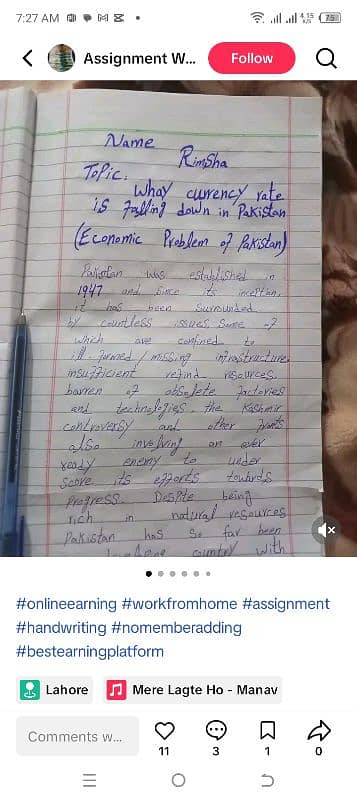 7:27 AM
4.15
K/s
75
Assignment W...
Follow
Name
Rimsha
Topic.
Whay currency rate
is falling down in Pakistan
(Economic Problem of Pakistan)
Pakistan was established in
1947 and since its inception,
it has been surrounded
by countless issues some of
which are confined to
ill-formed/missing infrastructure
insufficient resources
barren of obsolete factories
and technologies, the Kashmir
controversy and other fronts
also involving an ever
ready enemy to under
score its efforts towards
Progress. Despite being
rich in natural resources
Pakistan has so far been
country with
#onlineearning #workfromhome #assignment
#handwriting #nomemberadding
#bestearningplatform
Lahore
Mere Lagte Ho - Manav
Comments w...
11
3
1
0